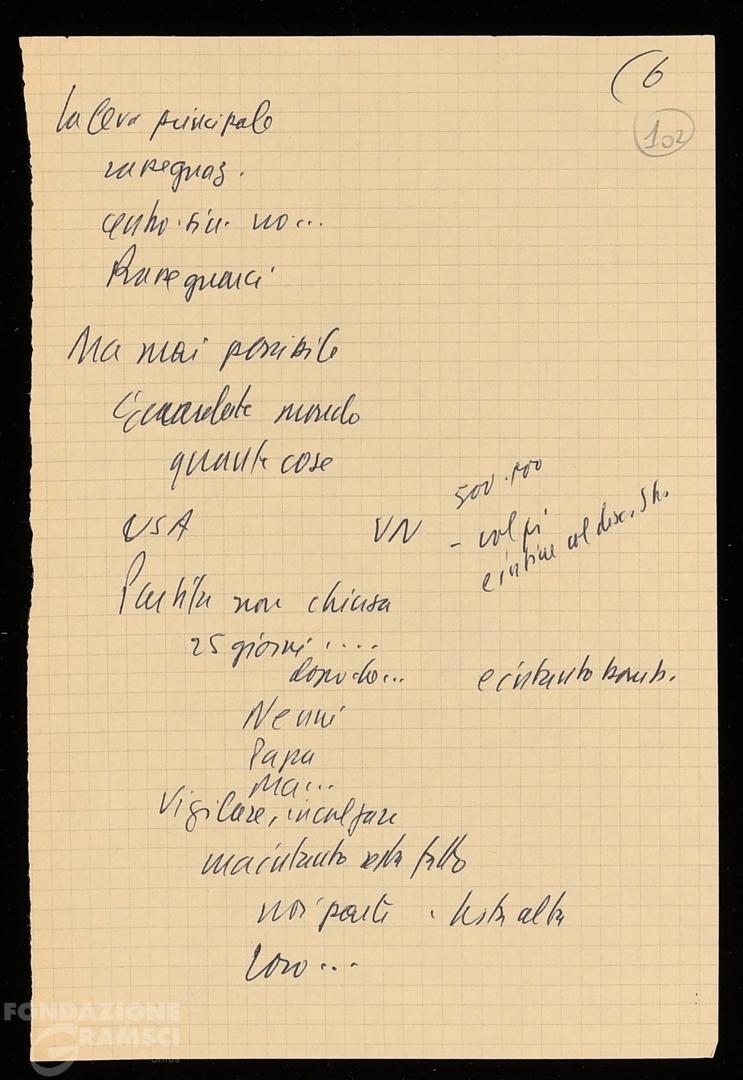 (6
102
La leva principale
rassegnaz.
centro-sin. no...
Rassegnarci
Ma mai possibile
Guardate mondo
quante cose
500.000
USA VN - colpi
e infine col disc. Jh.
Partita non chiusa
25 giorni....
dopodo... e intanto bomb.
Nenni
Papa
Ma...
Vigilare, incalzare
ma intanto resta fatto
noi parte . testa alta
Loro...
FONDAZIONE
GRAMSCI
onlus